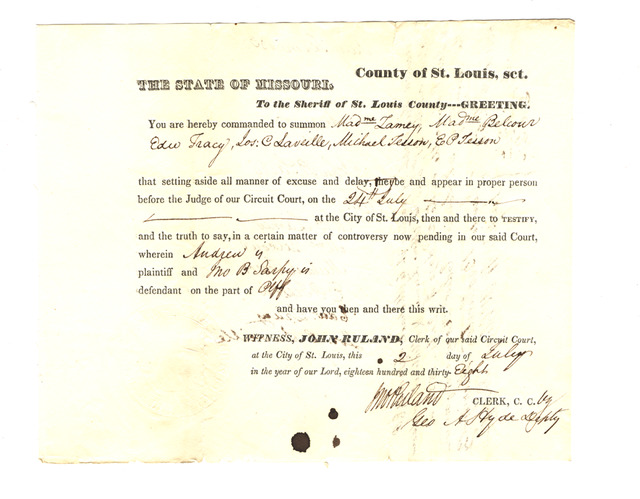 County of St. Louis, sct.
THE STATE OF MISSOURI.
To the Sheriff of St. Louis County---GREETING.
You are hereby commanded to summon Madme Lamey, Madme Belcour
Edw Tracy, Jos. C Laveille, Michael Tesson, E P Tesson
that setting aside all manner of excuse and delay, they be and appear in proper person
before the Judge of our Circuit Court, on the 24th July
at the City of St. Louis, then and there to TESTIFY,
and the truth to say, in a certain matter of controversy now pending in our said Court,
wherein Andrew is
plaintiff and Jno B Sarpy is
defendant on the part of Plff
and have you then and there this writ.
WITNESS, JOHN RULAND, Clerk of our said Circuit Court,
at the City of St. Louis, this 2 day of July
in the year of our Lord, eighteen hundred and thirty-Eight
Jno Ruland CLERK, C. C. by
Geo A Hyde Depty